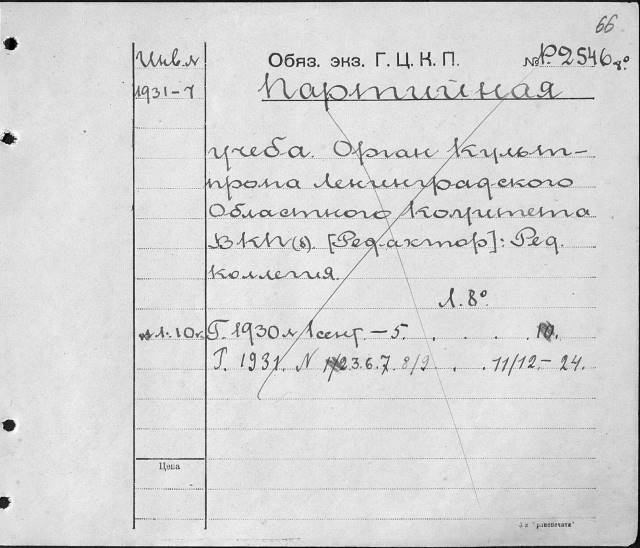 66
Инв. №
Обяз. экз. Г. Ц. К. П.
№ Р.2546 8°
1931-7
Партийная
учеба. Орган Культ-
пропа Ленинградского
Областного Комитета
ВКП(б). [Редактор]: Ред.
коллегия.
Л. 8°
Г. 1930 № 1 сент. – 5. . . . . 10.
Г. 1931. N 1/2 3. 6. 7. 8/9 . . 11/12. – 24.
Цена